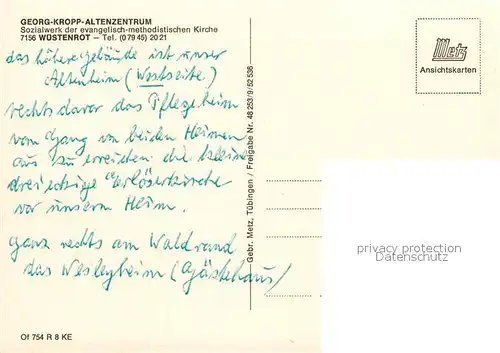 GEORG-KROPP-ALTENZENTRUM
Sozialwerk der evangelisch-methodistischen Kirche
7156 WÜSTENROT – Tel. (079 45) 20 21
das höhere Gebäude ist unser
Altenheim (Westseite)
rechts davor das Pflegeheim
vom Gang von beiden Heimen
aus zu erreichen die kleine
dreieckige Erlöserkirche
vor unserm Heim.
ganz rechts am Waldrand
das Wesleyheim (Gästehaus)
Of 754 R 8 KE
Gebr. Metz, Tübingen / Freigabe Nr. 48 253/9/52 536
Metz
Ansichtskarten
privacy protection
Datenschutz